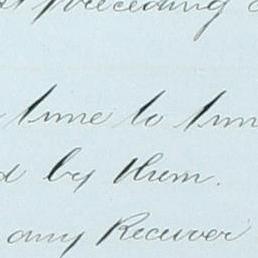 preceding
time to time
by them.
any Receiver